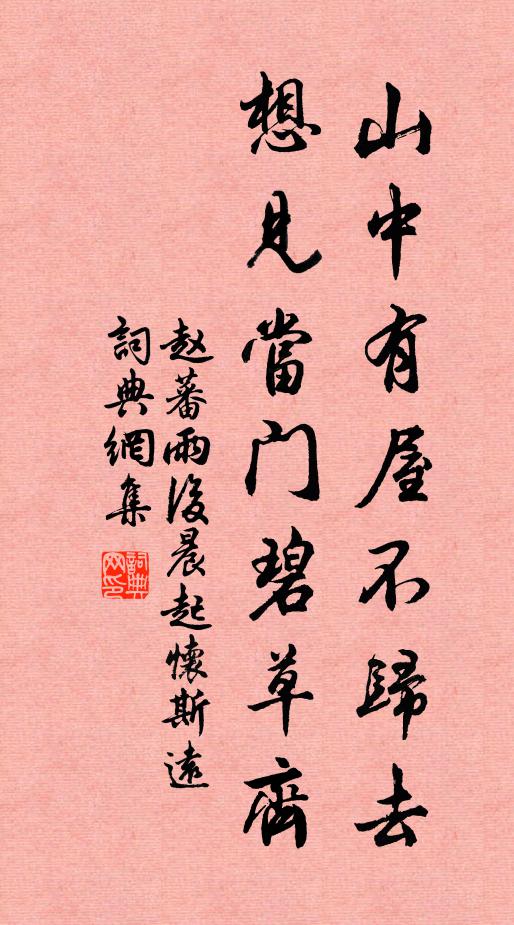 山中有屋不歸去
想見當门碧草齊
赵蕃雨後晨起懷斯遠
詞典網集
詞典网印